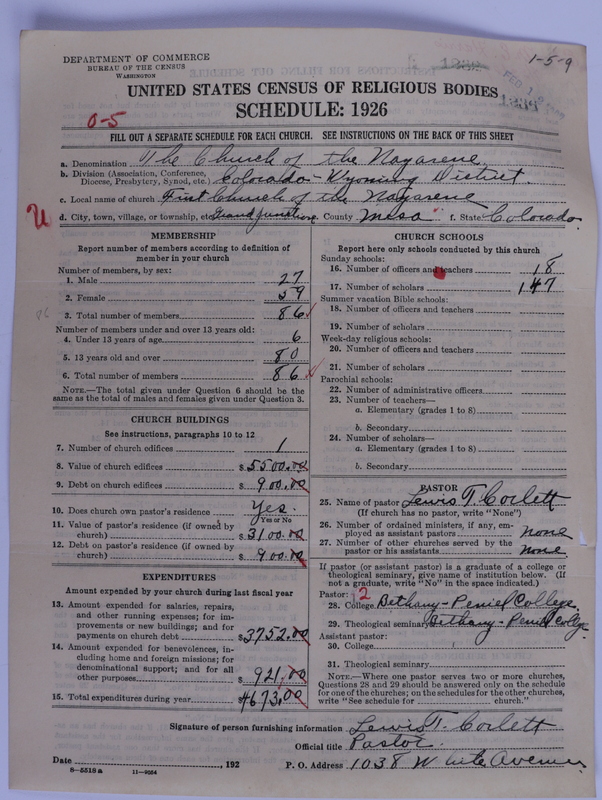 DEPARTMENT OF COMMERCE
BUREAU OF THE CENSUS
WASHINGTON
1-5-9
UNITED STATES CENSUS OF RELIGIOUS BODIES
SCHEDULE: 1926
0-5
FILL OUT A SEPARATE SCHEDULE FOR EACH CHURCH. SEE INSTRUCTIONS ON THE BACK OF THIS SHEET
a. Denomination The Church of the Nazarene
b. Division (Association, Conference, Diocese, Presbytery, Synod, etc.) Colorado-Wyoming District.
c. Local name of church First Church of the Nazarene
U d. City, town, village, or township, etc. Grand Junction County Mesa f. State Colorado.
MEMBERSHIP
Report number of members according to definition of
member in your church
Number of members, by sex:
1. Male 27
2. Female 59
3. Total number of members 86
Number of members under and over 13 years old:
4. Under 13 years of age 6
5. 13 years old and over 80
6. Total number of members 86
NOTE.—The total given under Question 6 should be
the same as the total of males and females given under Question 3.
CHURCH BUILDINGS
See instructions, paragraphs 10 to 12
7. Number of church edifices 1
8. Value of church edifices $5500.00
9. Debt on church edifices $900.00
10. Does church own pastor's residence? Yes.
Yes or No
11. Value of pastor's residence (if owned by
church) $3100.00
12. Debt on pastor's residence (if owned by
church) $900.00
EXPENDITURES
Amount expended by your church during last fiscal year
13. Amount expended for salaries, repairs,
and other running expenses; for im-
provements or new buildings; and for
payments on church debt $3752.00
14. Amount expended for benevolences, in-
cluding home and foreign missions; for
denominational support; and for all
other purposes 921.00
15. Total expenditures during year 4673.00
CHURCH SCHOOLS
Report here only schools conducted by this church
Sunday schools:
16. Number of officers and teachers 18
17. Number of scholars 147
Summer vacation Bible schools:
18. Number of officers and teachers
19. Number of scholars
Week-day religious schools:
20. Number of officers and teachers
21. Number of scholars
Parochial schools:
22. Number of administrative officers
23. Number of teachers—
a. Elementary (grades 1 to 8)
b. Secondary
24. Number of scholars—
a. Elementary (grades 1 to 8)
b. Secondary
PASTOR
25. Name of pastor Lewis T. Corlett
(If church has no pastor, write "None")
26. Number of ordained ministers, if any, em-
ployed as assistant pastors none
27. Number of other churches served by the
pastor or his assistants none
If pastor (or assistant pastor) is a graduate of a college or
theological seminary, give name of institution below. (If
not a graduate, write "No" in the space indicated.)
Pastor: 2
28. College Bethany-Peniel College.
29. Theological seminary Bethany-Peniel College
Assistant pastor:
30. College
31. Theological seminary
NOTE.—Where one pastor serves two or more churches,
Questions 28 and 29 should be answered only on the schedule
for one of the churches; on the schedules for the other churches,
write "See schedule for church."
Signature of person furnishing information Lewis T. Corlett
Official title Pastor.
Date , 192 P. O. Address 1038 White Avenue
8-5518a 11-9554